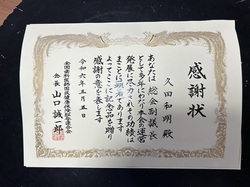 感謝状
久田和明殿
あなたは総会副議長
として多年にわたり本会運営
発展に尽力されその功績は
まことに顕著であります
よってここに記念品を贈り
感謝の意を表します
令和六年三月五日
会長 山口誠一郎